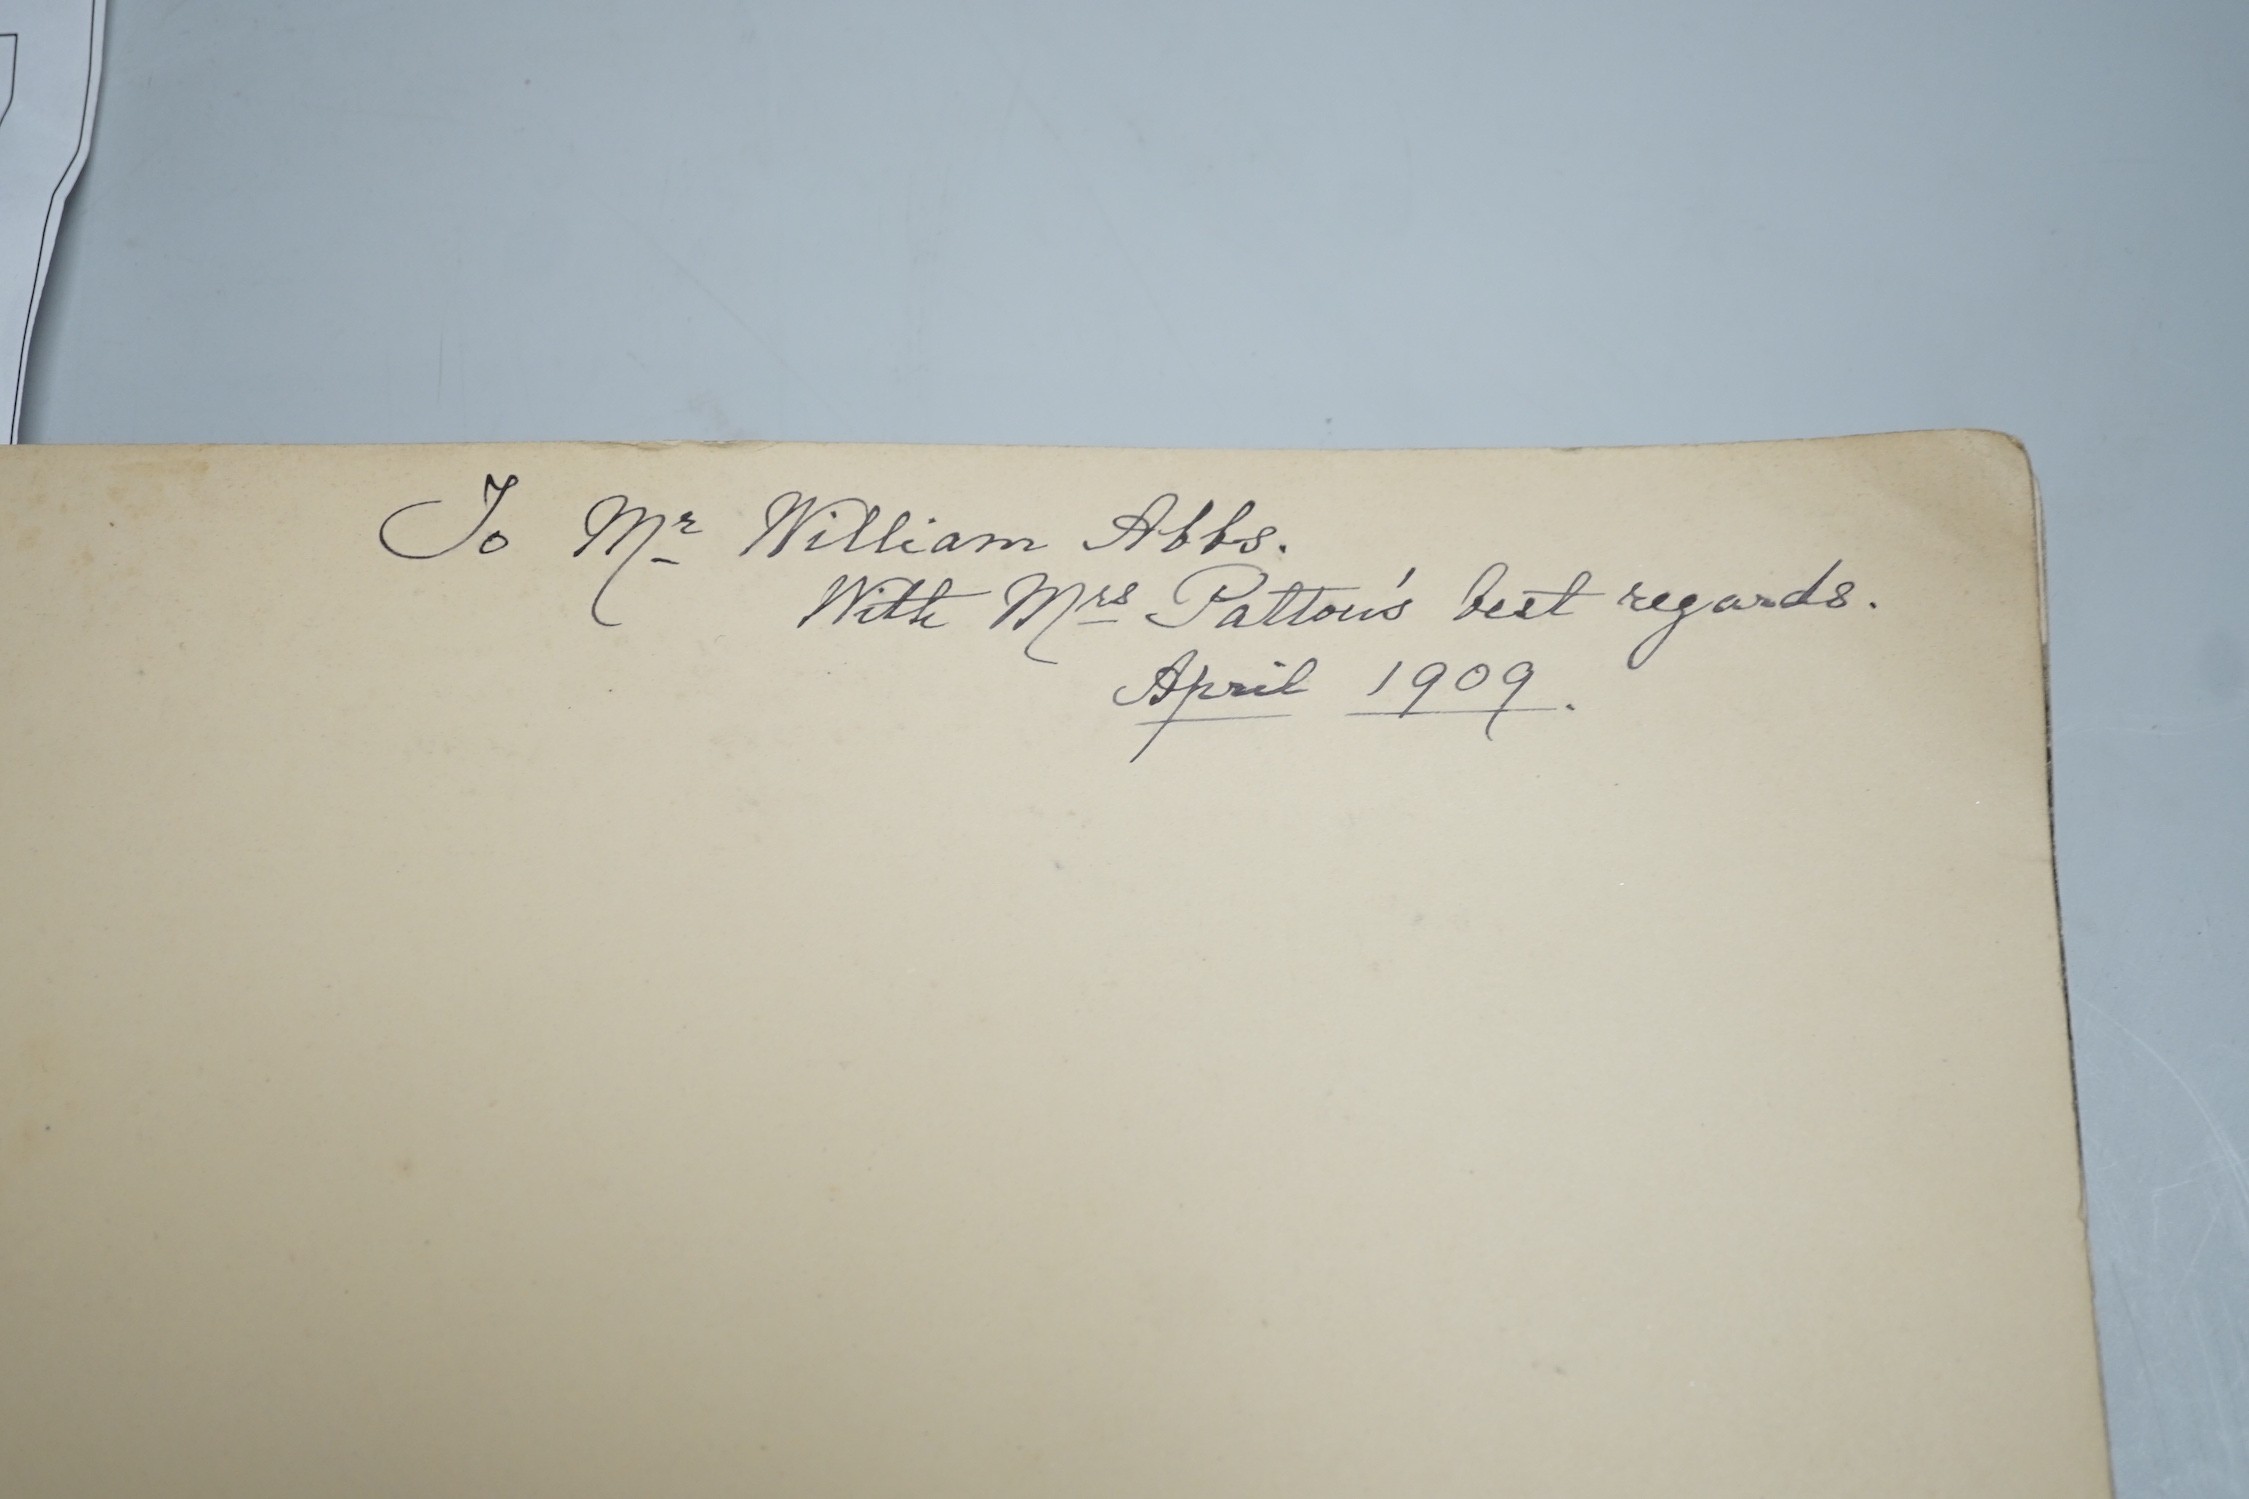 To Mr William Abbs.
With Mrs Patton's best regards.
April 1909.